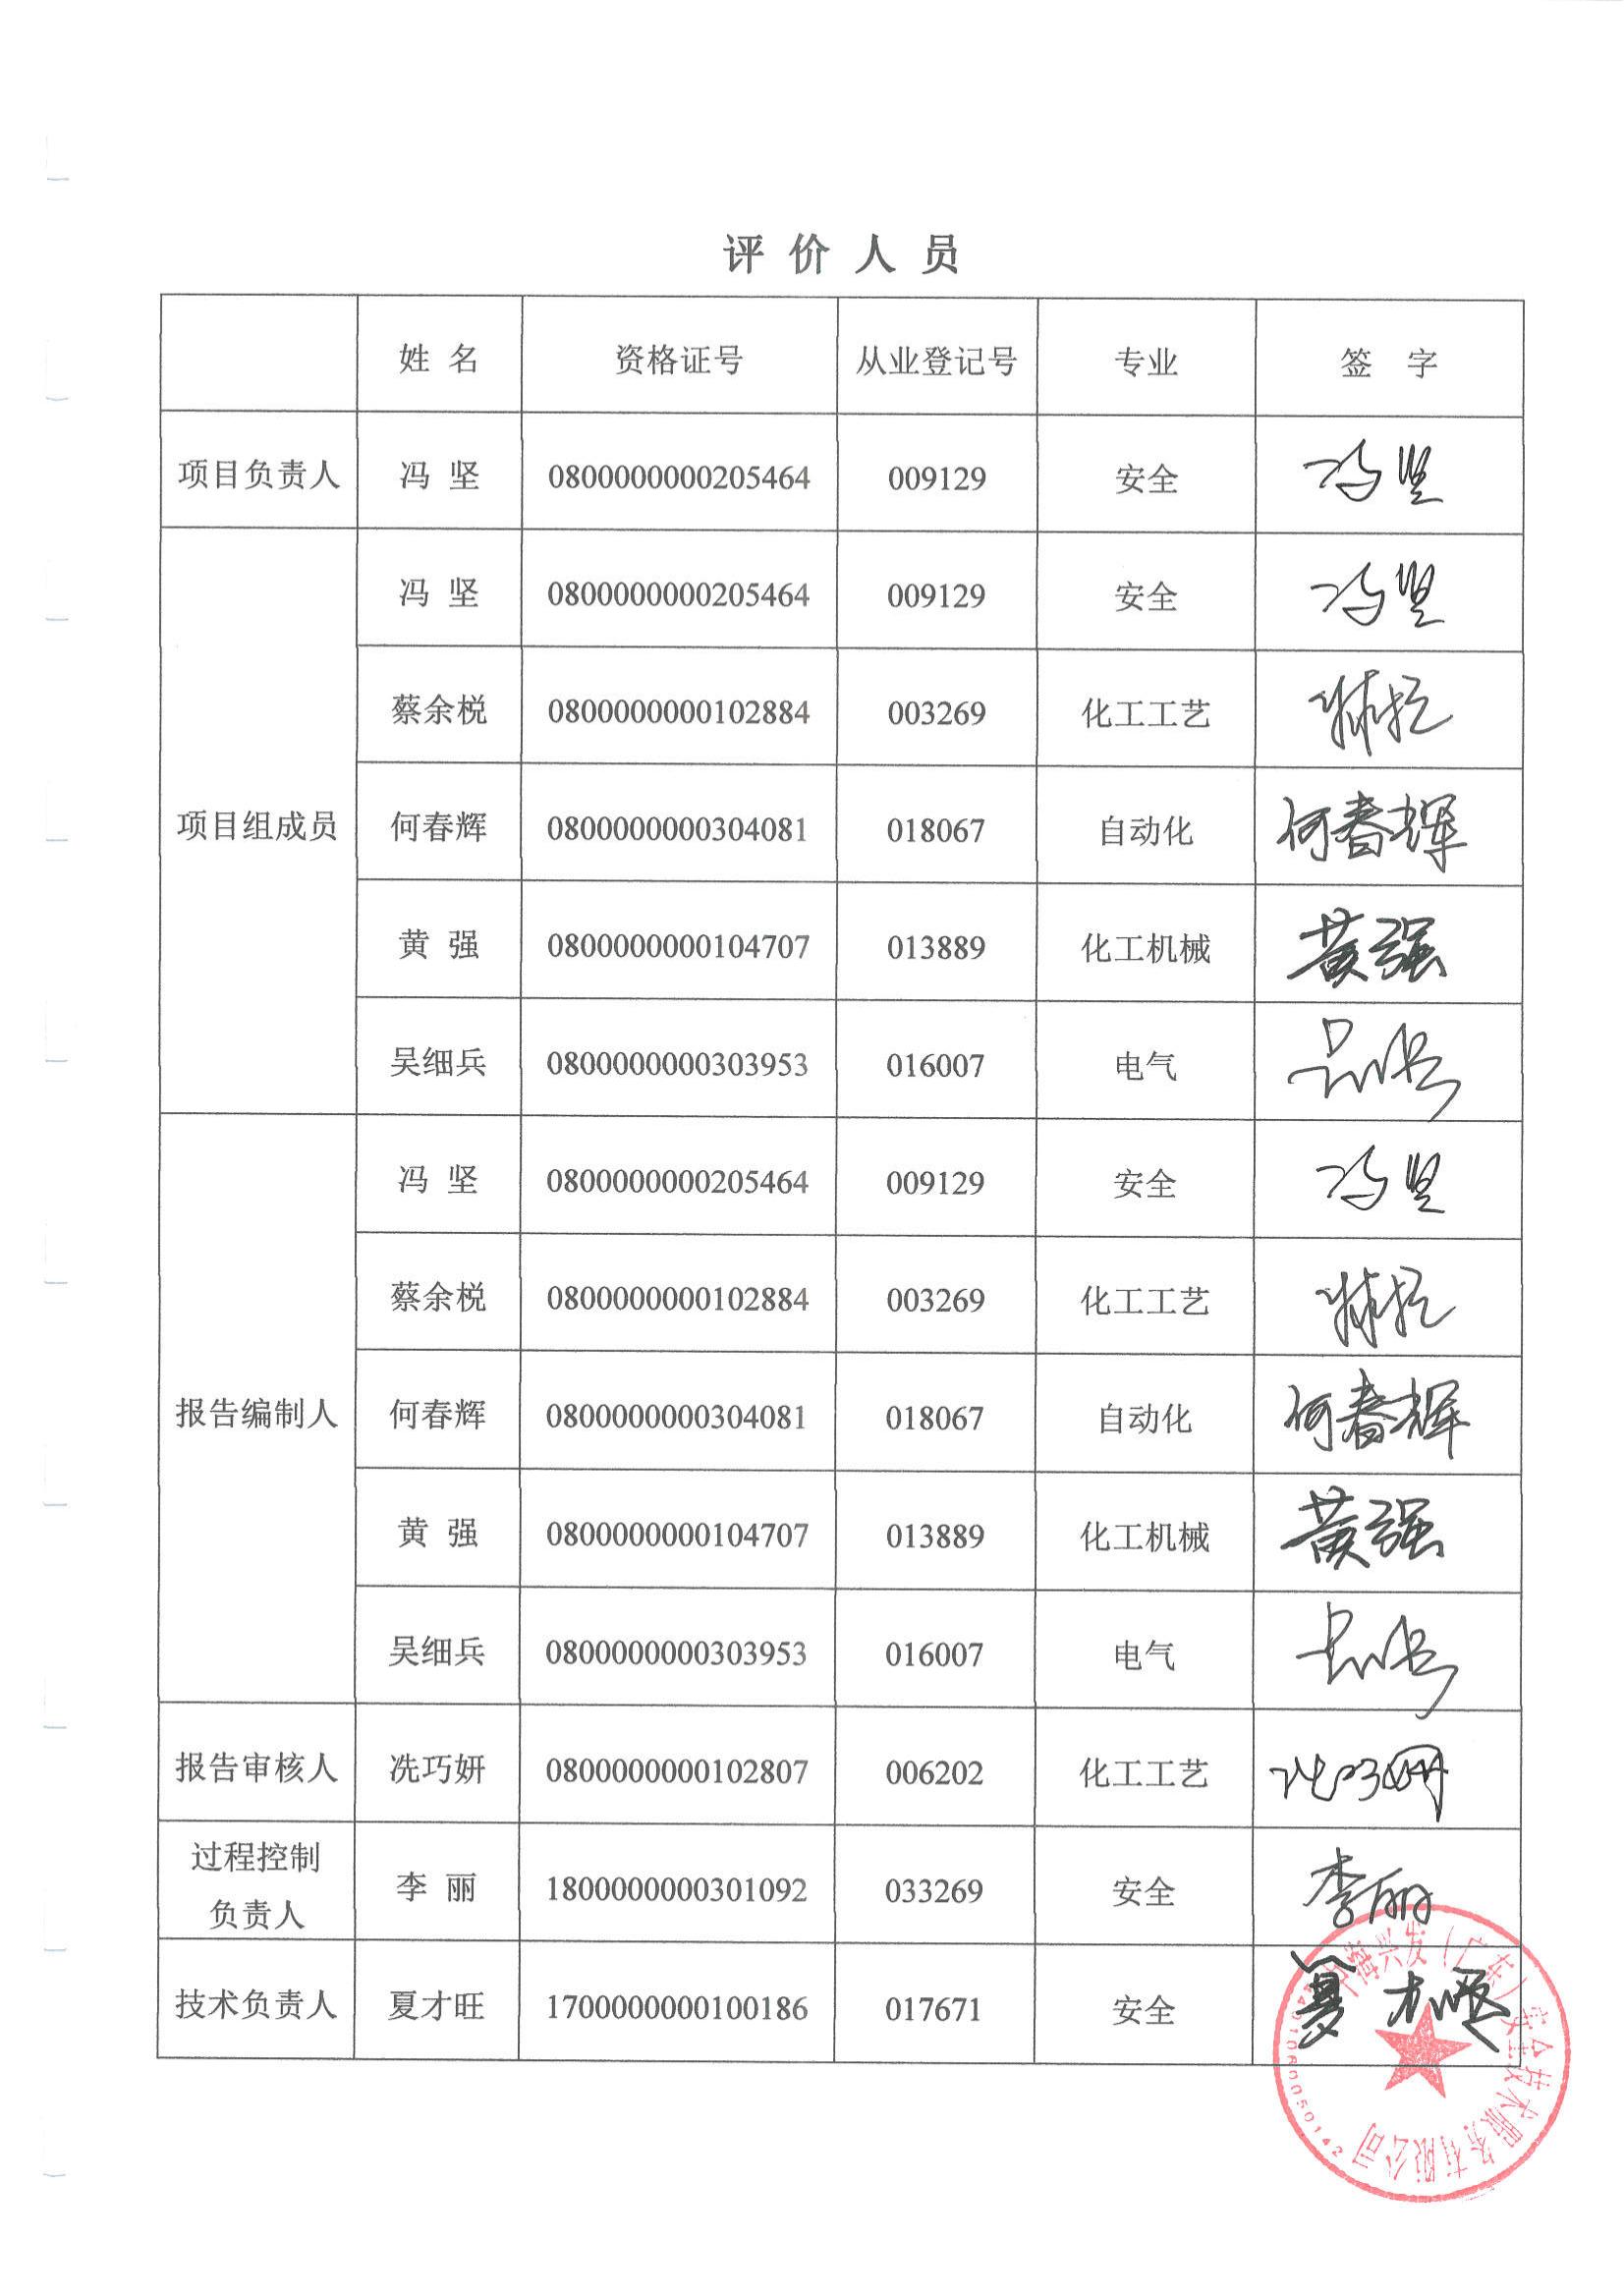 评 价 人 员
姓 名 资格证号 从业登记号 专业 签 字
项目负责人 冯 坚 0800000000205464 009129 安全 冯坚
项目组成员 冯 坚 0800000000205464 009129 安全 冯坚
蔡余棁 0800000000102884 003269 化工工艺
何春辉 0800000000304081 018067 自动化 何春辉
黄 强 0800000000104707 013889 化工机械 黄强
吴细兵 0800000000303953 016007 电气
报告编制人 冯 坚 0800000000205464 009129 安全 冯坚
蔡余棁 0800000000102884 003269 化工工艺
何春辉 0800000000304081 018067 自动化 何春辉
黄 强 0800000000104707 013889 化工机械 黄强
吴细兵 0800000000303953 016007 电气
报告审核人 冼巧妍 0800000000102807 006202 化工工艺
过程控制
负责人 李 丽 1800000000301092 033269 安全 李丽
技术负责人 夏才旺 1700000000100186 017671 安全 夏才旺
海兴发（广东）安全技术服务有限公司